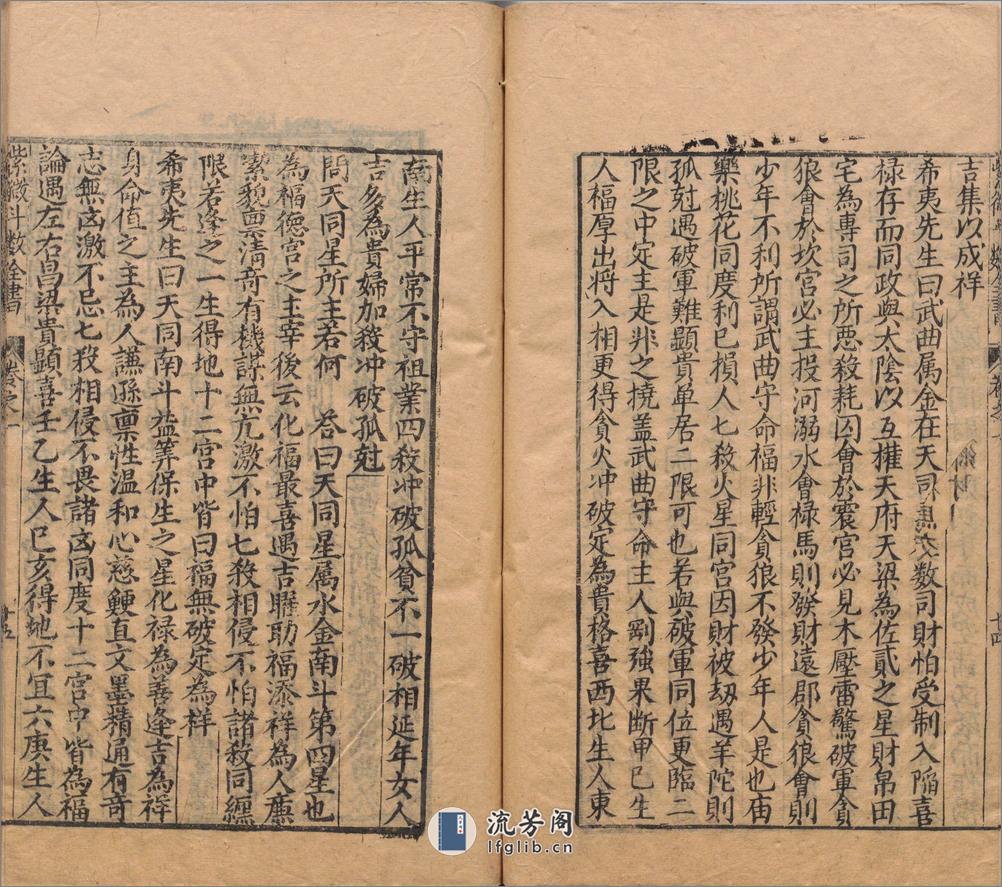 吉集以成祥
希夷先生曰武曲属金在天司壽次数司財怕受制入陥喜
禄存而同政與太陰以互權天府天梁為佐貳之星財帛田
宅為專司之所悪殺耗囚會於震宫必見木壓雷驚破軍貪
狼會於坎宫必主投河溺水會禄馬則發財遠郡貪狼會則
少年不利所謂武曲守命福非輕貪狼不發少年人是也庙
樂桃花同度利已損人七殺火星同宫因財被刼遇羊陀則
孤尅遇破軍難顕貴单居二限可也若與破軍同位更臨二
限之中定主是非之撓盖武曲守命主人剛強果断甲己生
人福厚出將入相更得貪火冲破定為貴格喜西北生人東
十四
南生人平常不守祖業四殺冲破孤貧不一破相延年女人
吉多為貴婦加殺冲破孤尅
問天同星所主若何 答曰天同星属水金南斗第四星也
為福德宫之主宰後云化福最喜遇吉曜助福添祥為人廉
潔貌禀清奇有機謀無亢激不怕七殺相侵不怕諸殺同纏
限若逢之一生得地十二宫中皆曰福無破定為祥
希夷先生曰天同南斗益筭保生之星化禄為善逢吉為祥
身命值之主為人謙遜禀性温和心慈鯁直文墨精通有奇
志無凶激不忌七殺相侵不畏諸凶同度十二宫中皆為福
論遇左右昌梁貴顕喜壬乙生人巳亥得地不宜六庚生人
紫微斗数全書 卷之一 十五
流芳阁
lfglib.cn